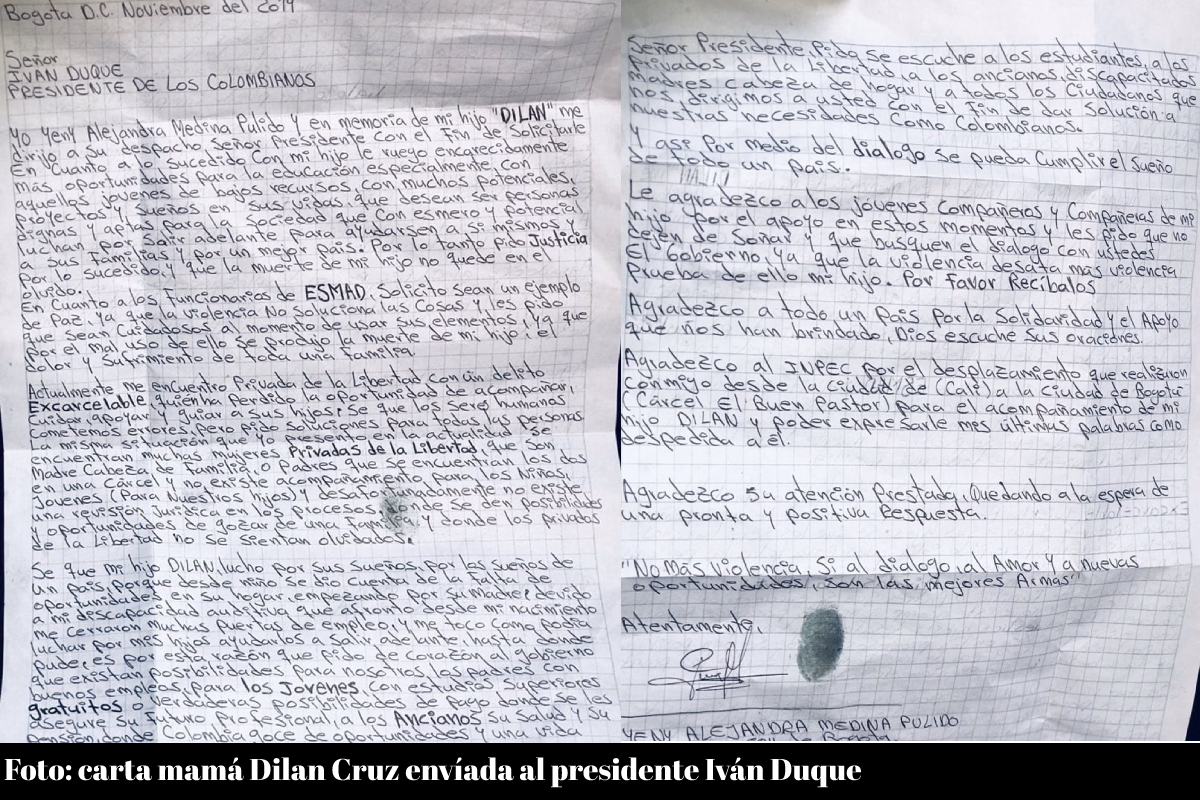 Bogota D.C. Noviembre del 2019
Señor
IVAN DUQUE
PRESIDENTE DE LOS COLOMBIANOS
Yo Yeny Alejandra Medina Pulido y en memoria de mi hijo "DILAN" me
dirijo a su despacho Señor Presidente con el fin de solicitarle
En Cuanto a lo sucedido Con mi hijo le ruego encarecidamente
más oportunidades para la educación especialmente, con
aquellos jovenes de bajos recursos, con muchos potenciales,
proyectos y sueños en sus vidas, que desean ser personas
dignas y aptas para la sociedad que con esmero y potencial
luchan por salir adelante para ayudarsen a si mismos,
a sus familias y por un mejor pais. Por lo tanto pido Justicia
por lo sucedido, y que la muerte de mi hijo no quede en el
olvido.
En Cuanto a los funcionarios de ESMAD, Solicito sean un ejemplo
de Paz, ya que la violencia No soluciona las Cosas y les pido
que sean Cuidadosos al momento de usar sus elementos, ya que
por el mal uso de ello se produjo la muerte de mi hijo, el
dolor y sufrimiento de toda una familia.
Actualmente me encuentro Privada de la Libertad con un delito
Excarcelable, quien ha Perdido la oportunidad de acompañar,
Cuidar, Apoyar y guiar a sus hijos, Se que los Seres humanos
Cometemos errores, pero pido soluciones para todas las personas
La misma situación que yo presento en la actualidad se
encuentran muchas mujeres Privadas de la Libertad, que son
Madre Cabeza de Familia, o Padres que se encuentran los dos
en una Cárcel y no existe acompañamiento para los Niños,
Jovenes (Para Nuestros hijos) y desafortunadamente no existe
una revisión Juridica en los procesos, donde se den posibilidades
y oportunidades de gozar de una Familia y donde los privados
de la Libertad no se sientan olvidados.
Se que mi hijo DILAN, lucho por sus sueños, por los sueños de
un pais porque desde niño se dio cuenta de la falta de
oportunidades en su hogar, empezando por su Madre, devido
a mi descapacidad auditiva que afronto desde mi nacimiento
me cerraron muchas puertas de empleo, y me toco como podia
luchar por mis hijos ayudarlos a salir adelante, hasta donde
pude; es por esta razón que pido de corazón al gobierno
que existan posibilidades, para nosotros los padres con
buenos empleos, para los Jovenes, con estudios superiores
gratuitos o verdaderas posibilidades de pago donde se les
asegure su futuro profesional, a los Ancianos su salud y su
Pensión, donde Colombia goce de oportunidades y una vida
Señor Presidente Pido se escuche a los estudiantes, a los
privados de la Libertad, a los ancianos, discapacitados
madres cabeza de hogar y a todos los Ciudadanos que
nos dirigimos a usted con el fin de dar solución a
nuestras necesidades como Colombianos.
Y asi Por medio del dialogo se pueda cumplir el sueño
de todo un pais.
Le agradezco a los jóvenes Compañeros y Compañeras de mi
hijo por el apoyo en estos momentos y les pido que no
dejen de soñar y que busquen el dialogo con ustedes
El Gobierno, ya que la violencia desata más violencia
prueba de ello mi hijo. Por favor Recíbalos
Agradezco a todo un pais por la solidaridad y el Apoyo
que nos han brindado, Dios escuche sus oraciones.
Agradezco al INPEC por el desplazamiento que realizaron
conmigo desde la ciudad de (Cali) a la ciudad de Bogotá
(Cárcel El Buen Pastor) para el acompañamiento de mi
hijo DILAN y poder expresarle mis últimas palabras como
despedida a el.
Agradezco su atención Prestada, Quedando a la espera de
una pronta y positiva Respuesta.
"No Más violencia, Si al dialogo, al Amor y a nuevas
oportunidades, son las mejores Armas"
Atentamente,
YENY ALEJANDRA MEDINA PULIDO
Foto: carta mamá Dilan Cruz envíada al presidente Iván Duque